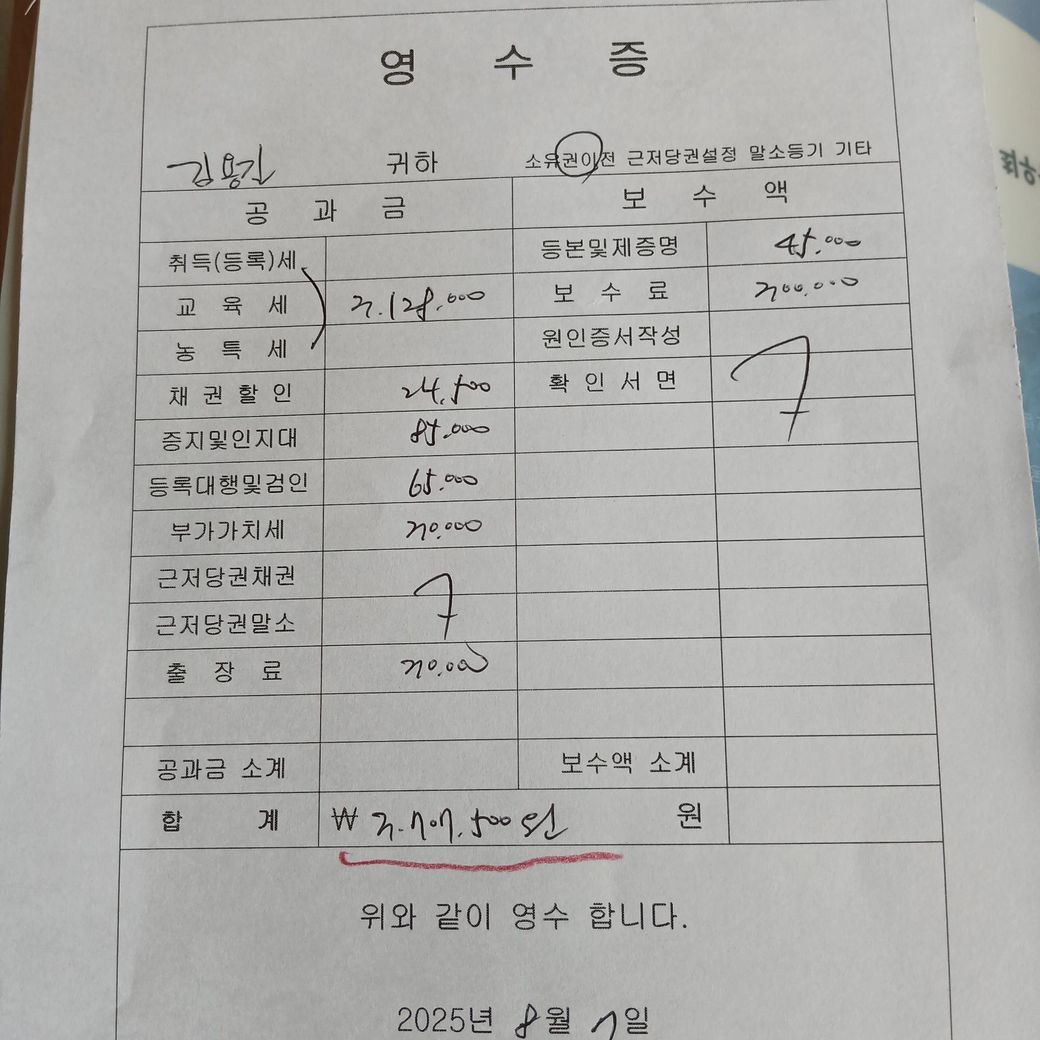 영 수 증
김용길 귀하 소유권이전 근저당권설정 말소등기 기타
공 과 금 보 수 액
취득(등록)세 등본및제증명 45.000
교 육 세 3.128.000 보 수 료 300.000
농 특 세 원인증서작성
채 권 할 인 24.500 확 인 서 면
증지및인지대 85.000
등록대행및검인 65.000
부가가치세 30.000
근저당권채권
근저당권말소
출 장 료 30.000
공과금 소계 보수액 소계
합 계 ₩ 3.707.500원 원
위와 같이 영수 합니다.
2025년 8월 7일